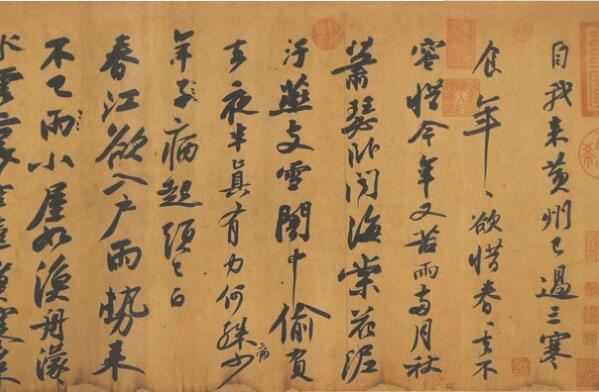 自我来黄州已過三寒
食年〻欲惜春〻去不
容惜今年又苦雨兩月秋
蕭瑟卧聞海棠花泥
汙燕支雪闇中偷負
去夜半真有力何殊少病
年子病起頭已白
春江欲入戶雨勢来
不已雨小屋如漁舟濛
水雲裏空庖煮寒